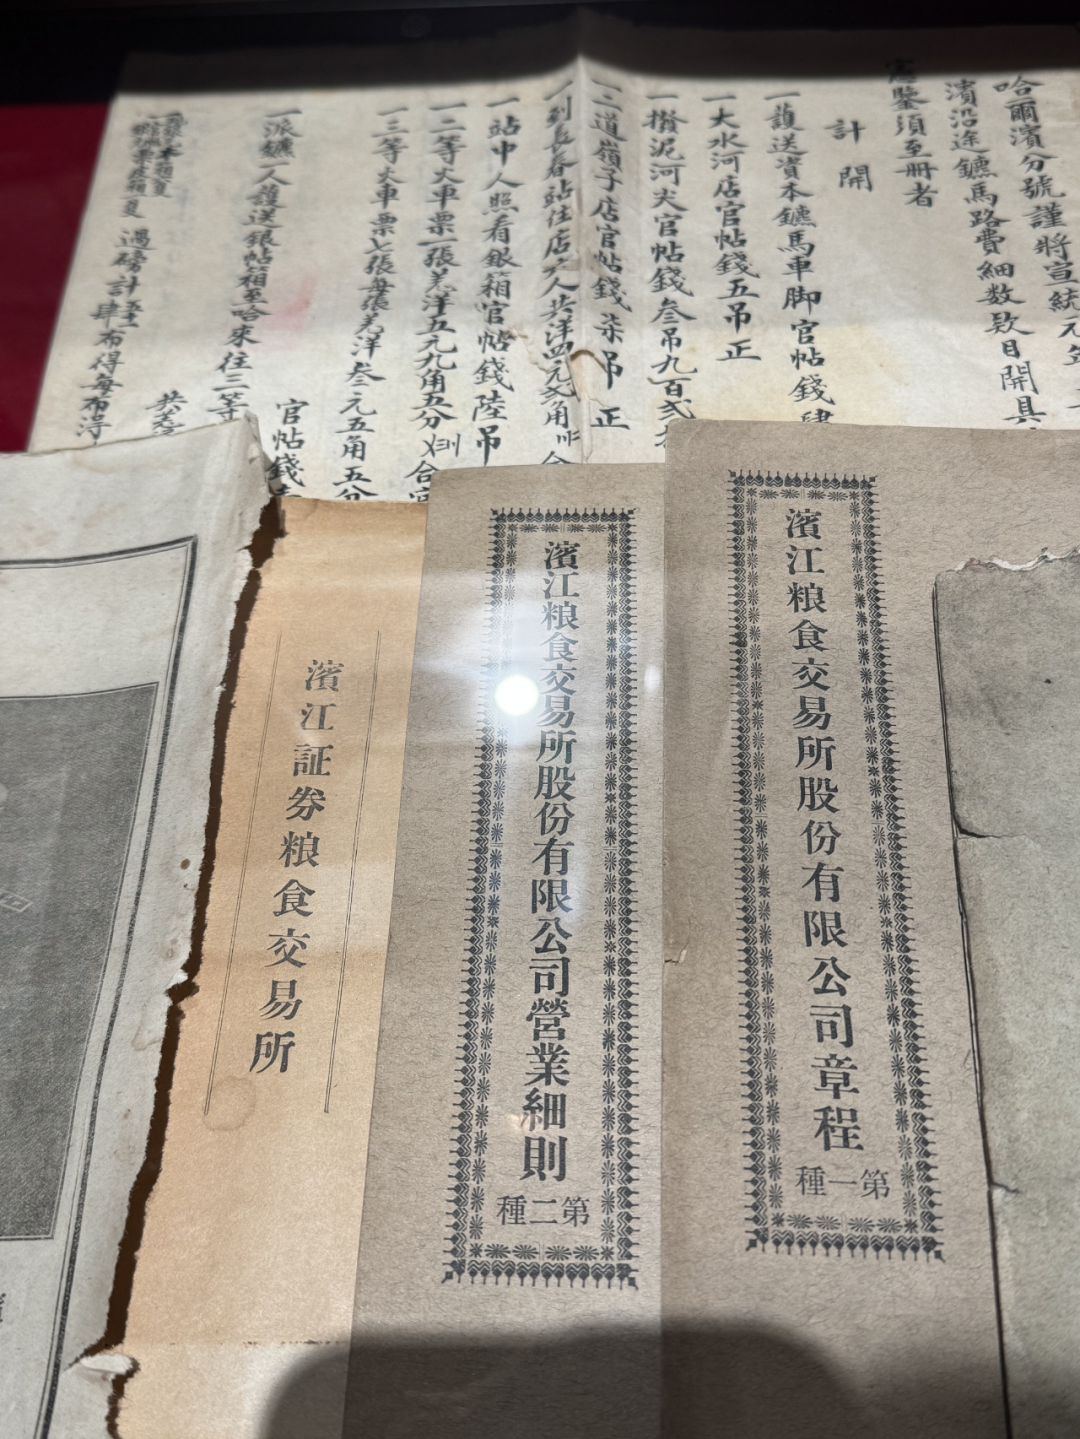 哈爾濱分號謹將宣統元年
濱沿途鑣馬路費細数欵目開具
憲鑒須至冊者
計開
一護送資本鑣馬車脚官帖錢肆
一大水河店官帖錢五吊正
一攢泥河尖官帖錢叁吊九百弍
一二道嶺子店官帖錢柒吊正
一到長春站住店六人共洋四元弍角
一站中人照看銀箱官帖錢陸吊
一二等火車票一張羌洋五元九角五分
一三等火車票七張每張羌洋叁元五角五分
一派鑣人護送銀帖箱至哈來往三等
官帖錢
過磅計
肆布得每布得
濱江粮食交易所股份有限公司章程
第一種
濱江粮食交易所股份有限公司營業細則
第二種
濱江証券粮食交易所